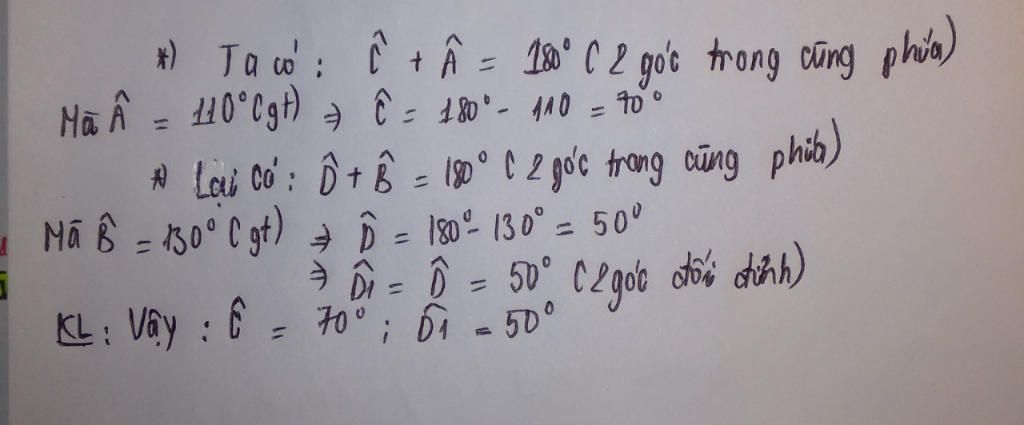 *) Ta có : Ĉ + Â = 180° ( 2 góc trong cùng phía)
Mà Â = 110° (gt) ⇒ Ĉ = 180° - 110 = 70°
*) Lại có : D̂ + B̂ = 180° ( 2 góc trong cùng phía)
Mà B̂ = 130° (gt) ⇒ D̂ = 180° - 130° = 50°
⇒ D̂1 = D̂ = 50° ( 2 góc đối đỉnh)
KL : Vậy : Ĉ = 70° ; D̂1 = 50°